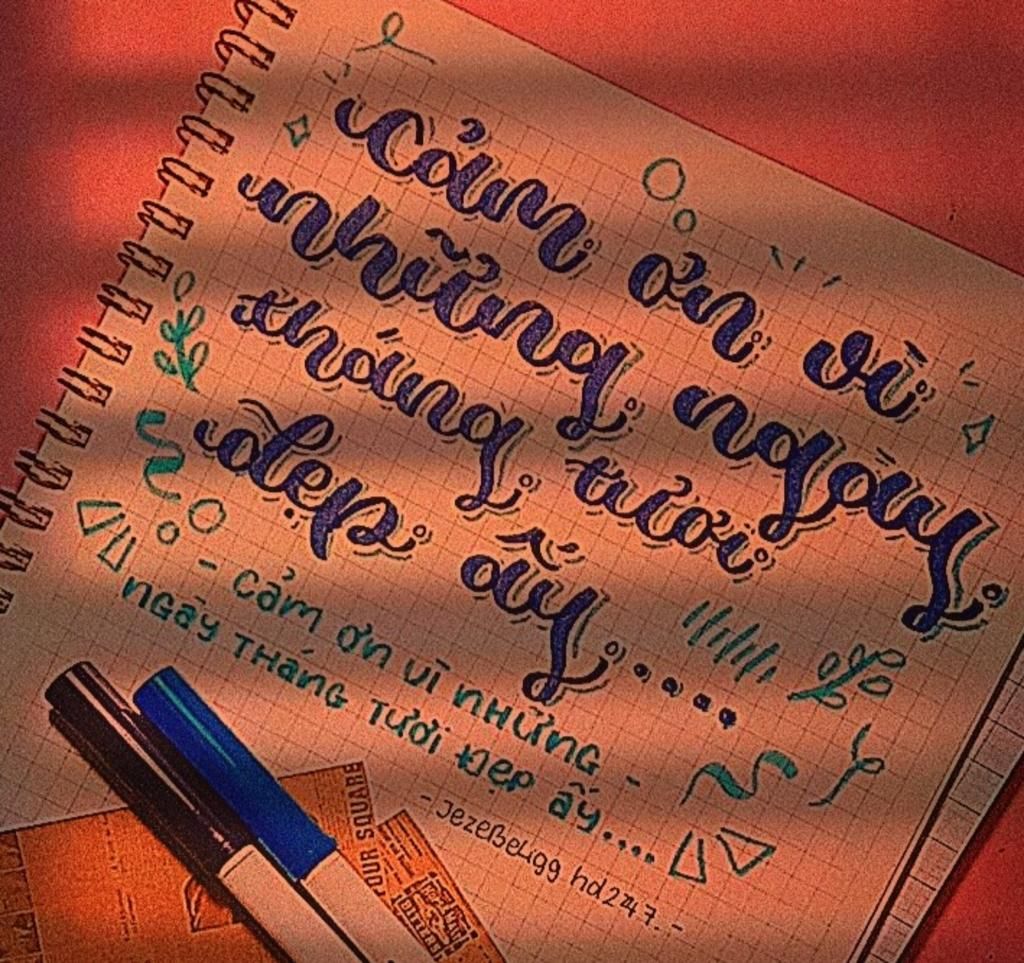 Cảm ơn vì
những ngày
tháng tươi
đẹp ấy....
- cảm ơn vì những -
ngày tháng tươi đẹp ấy....
- Jezebeugg hd247. -
FOUR SQUARE